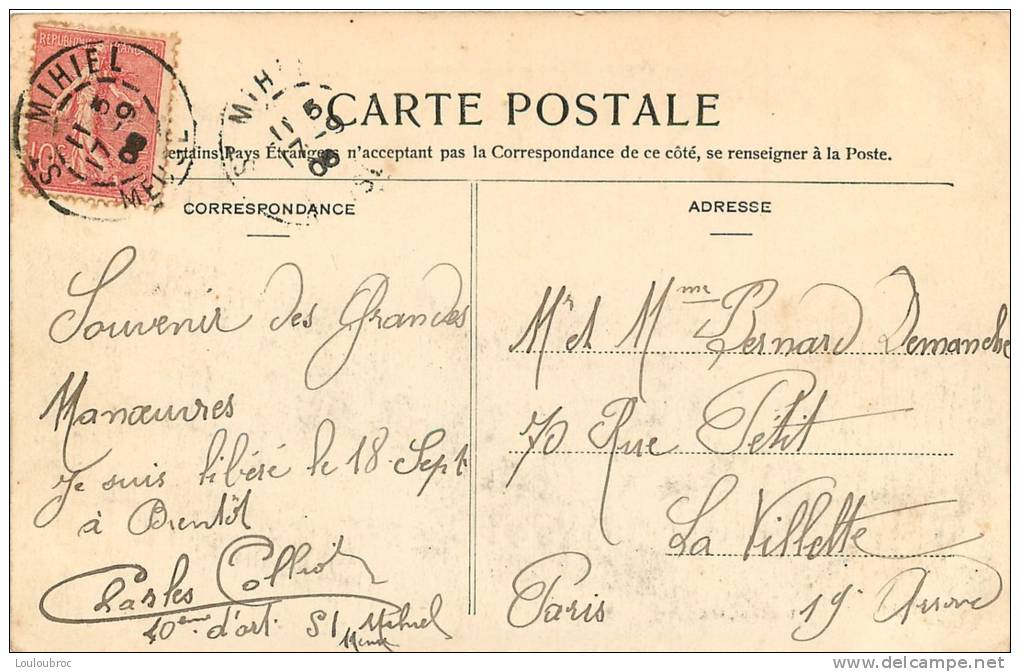 REPUBLIQUE FRANÇAISE
ST MIHIEL
11 5
17 -9
08
MEUSE
10c
ST MIHI
11 5
17 -9
08
CARTE POSTALE
ertains Pays Étrangers n'acceptant pas la Correspondance de ce côté, se renseigner à la Poste.
CORRESPONDANCE
Souvenir des Grandes
Manœuvres
je suis libéré le 18 Sept
à Bientôt
Charles Colliot
40ème d'art. St Mihiel
Meuse
ADRESSE
Mr et Mme Bernard Demanche
70 Rue Petit
La Villette
Paris 19e Arrond
Louloubroc
http://www.delcampe.net